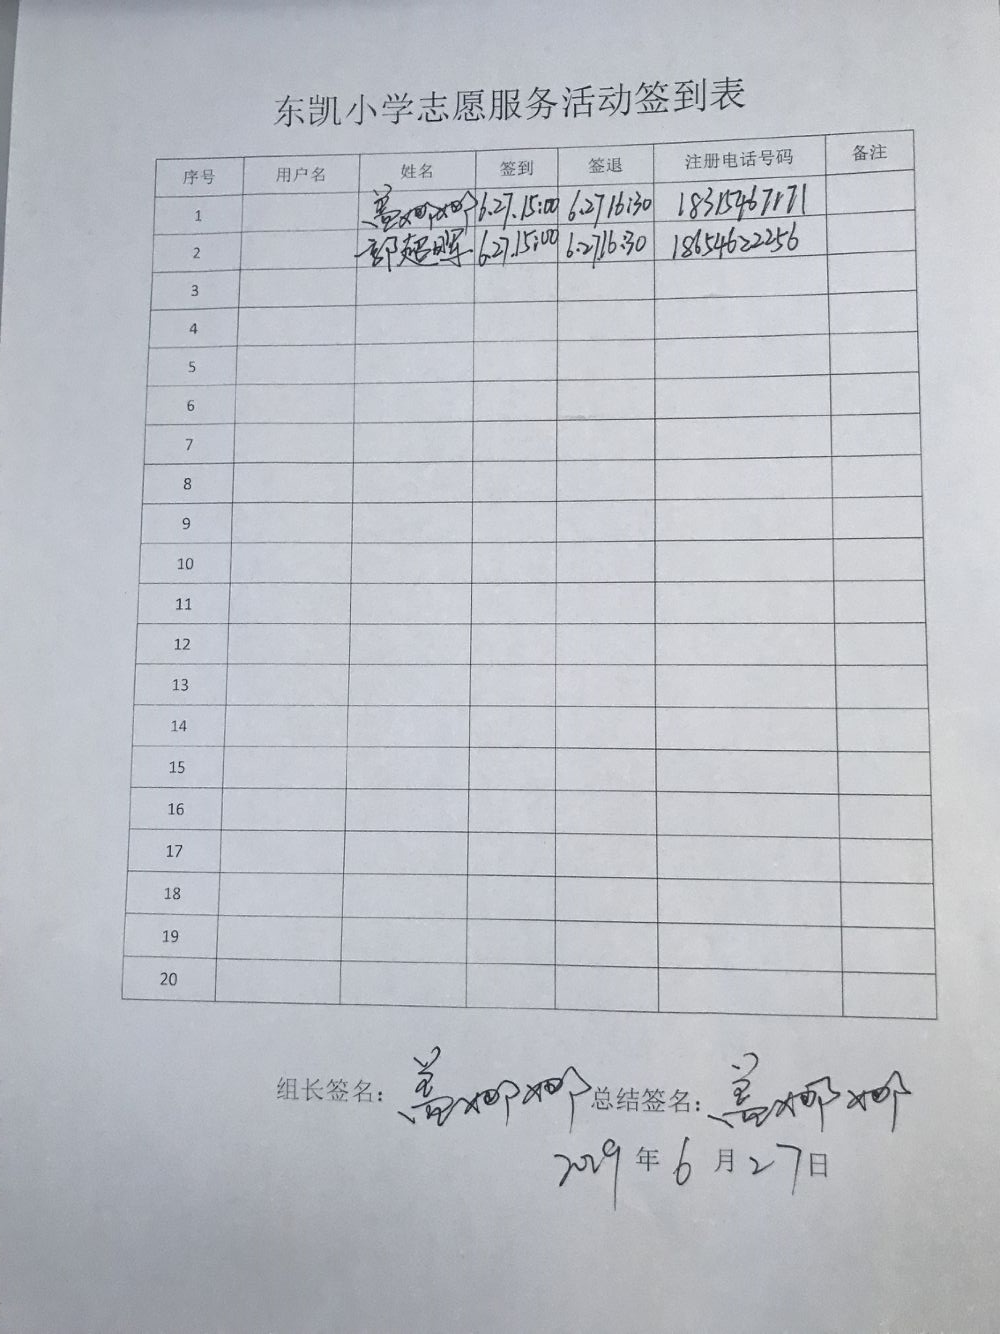 东凯小学志愿服务活动签到表
序号 用户名 姓名 签到 签退 注册电话号码 备注
1 盖娜娜 6.27.15:00 6.27 16:30 18315467171
2 郭超晖 6.27.15:00 6.27 16:30 18654622256
3
4
5
6
7
8
9
10
11
12
13
14
15
16
17
18
19
20
组长签名：盖娜娜 总结签名：盖娜娜
年 6 月 27 日